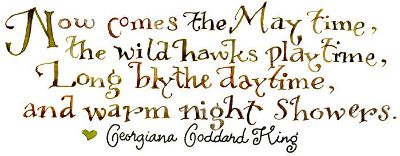 Now comes the May time,
the wild hawks playtime,
Long blythe daytime,
and warm night showers.
Georgiana Goddard King